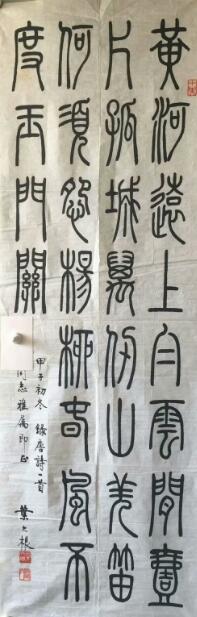 黃河遠上白雲間壹
片孤城萬仞山羌笛
何須怨楊柳春風不
度玉門關
甲子初冬 錄唐詩一首
同志雅屬即正
葉大根